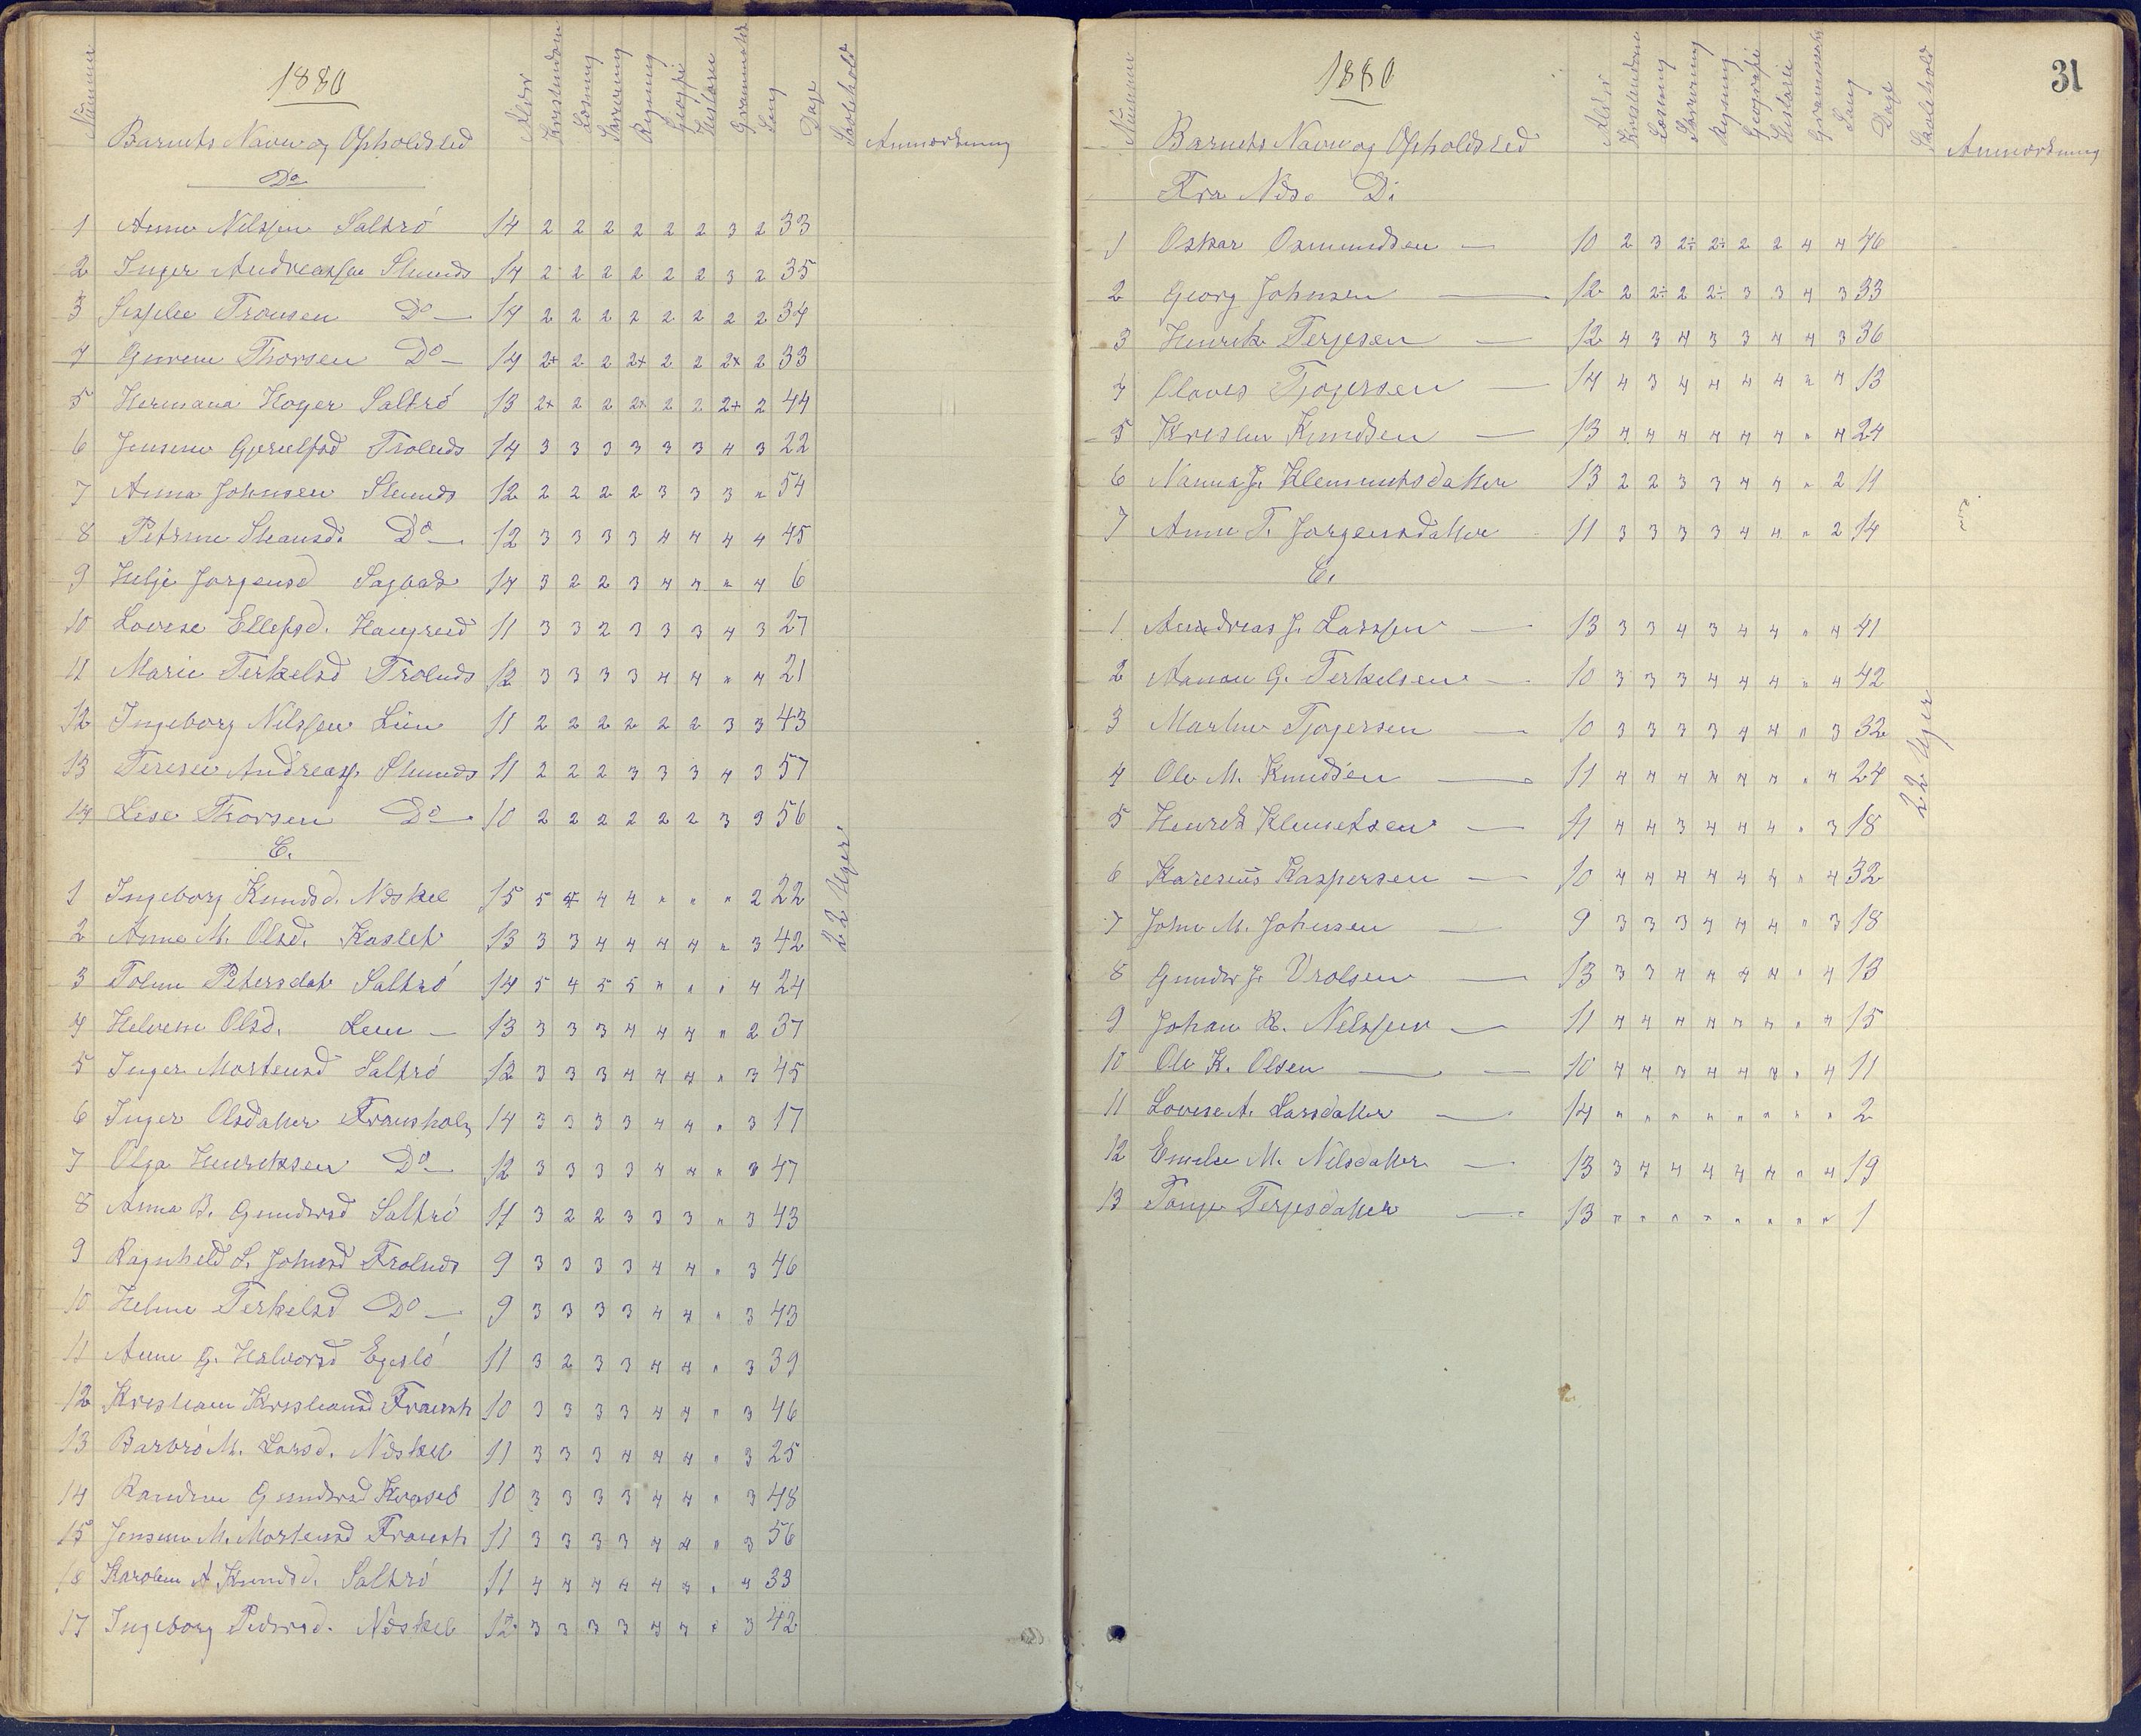 1880
Nummer Barnets Navn og Opholdsted Alder Kristendom Læsning Skrivning Regning Geogrfi Historie Grammatik Sang Dage Skolehold Anmærkning
Do
1 Anne Nilssen Saltrö 14 2 2 2 2 2 2 3 2 33
2 Inger Andreassen Slunds 14 2 2 2 2 2 2 3 2 35
3 Fronsen Do 14 2 2 2 2 2 2 2 2 34
4 Thorsen Do 14 2+ 2 2 2+ 2 2 2+ 2 33
5 Hermana Hoyer Saltrö 13 2+ 2 2 2+ 2 2 2+ 2 44
6 Jensine Gjerulfsd Trolnds 14 3 3 3 3 3 3 4 3 22
7 Anna Johnsen Slunds 12 2 2 2 2 3 3 3 " 54
8 Petrine Do 12 3 3 3 3 4 4 4 4 45
9 Helje Jorgensd 14 3 2 2 3 4 4 " 4 6
10 Lovise Ellefsd. Haugreid 11 3 3 2 3 3 3 4 3 27
11 Marie Terkelsd Trolnds 12 3 3 3 3 4 4 " 4 21
12 Ingeborg Nilssen Lien 11 2 2 2 2 2 2 3 3 43
13 Terese Andreass. Slunds 11 2 2 2 3 3 3 4 3 57
14 Lise Thorsen Do 10 2 2 2 2 2 2 3 3 56
C.
1 Ingeborg Knudsd. Neskel 15 5 4 4 4 " " " 2 22
2 Anne M. Olsd. Kaslet 13 3 3 4 4 4 4 " 3 42
3 Toline Petersdat Saltrö 14 5 4 5 5 " " " 4 24
4 Helvine Olsd. Lien 13 3 3 3 4 4 4 " 2 37
5 Inger Mortensd Saltrö 12 3 3 3 4 4 4 " 3 45
6 Inger Olsdatter Fransholm 14 3 3 3 3 4 4 " 3 17
7 Olga Henriksen Do 12 3 3 3 3 4 4 " 3 47
8 Anna B. Gundersd Saltrö 11 3 2 2 3 3 3 " 3 43
9 Ragnhild S. Johnsd Trolnds 9 3 3 3 3 4 4 " 3 46
10 Helene Terkelsd Do 9 3 3 3 3 4 4 " 3 43
11 Anne G. Halvorsd 11 3 2 3 3 4 4 " 3 39
12 Kristiane Kristiansd Fransh 10 3 3 3 3 4 4 " 3 46
13 Barbro M. Larsd. Neskel 11 3 3 3 4 4 4 " 3 25
14 Randine Gundersd 10 3 3 3 3 4 4 " 3 48
15 Jensine M. Mortensd Fransh 11 3 3 3 3 4 4 " 3 56
16 Karoline A. Knudsd. Saltrö 11 4 4 4 4 4 4 " 4 33
17 Ingeborg Pedersd. Neskel 12 3 3 3 3 4 4 " 3 42
22 Uger
31
1880
Nummer Barnets Navn og Opholdsted Alder Kristendom Læsning Skrivning Regning Geografi Historie Grammatik Sang Dage Skolehold Anmærkning
Fra Nds. Di
1 Oskar Osmundsen 10 2 3 2÷ 2÷ 2 2 4 4 46
2 Georg Johnsen 12 2 2÷ 2 2÷ 3 3 4 3 33
3 Henrik Terjesen 12 4 3 4 3 3 4 4 3 36
4 Olaves Tjøgersen 14 4 3 4 4 4 4 " 4 13
5 Kristen Knudsen 13 4 4 4 4 4 4 " 4 24
6 Nanna J. Klemmetsdatter 13 2 2 3 3 4 4 " 2 11
7 Anne T. Jorgensdatter 11 3 3 3 3 4 4 " 2 14
C.
1 Andreas J. Larssen 13 3 3 4 3 4 4 " 4 41
2 G. Terkelsen 10 3 3 3 4 4 4 " 4 42
3 Martin Tjøgersen 10 3 3 3 3 4 4 " 3 32
4 Ole M. Knudsen 11 4 4 4 4 4 4 " 4 24
5 Henrik Klemetsen 11 4 4 3 4 4 4 " 3 18
6 Karenius Kaspersen 10 4 4 4 4 4 4 " 4 32
7 John M. Johnsen 9 3 3 3 4 4 4 " 3 18
8 Gunder J. Vrolsen 13 3 3 4 4 4 4 " 4 13
9 Johan R. Nilssen 11 4 4 4 4 4 4 " 4 15
10 Ole K. Olsen 10 4 4 3 4 4 4 " 4 11
11 Lovise A. Larsdatter 14 " " " " " " " " 2
12 Emelie M. Nilsdatter 13 3 4 4 4 4 4 " 4 19
13 Tonje Terjesdatter 13 " " " " " " " " 1
22 Uger